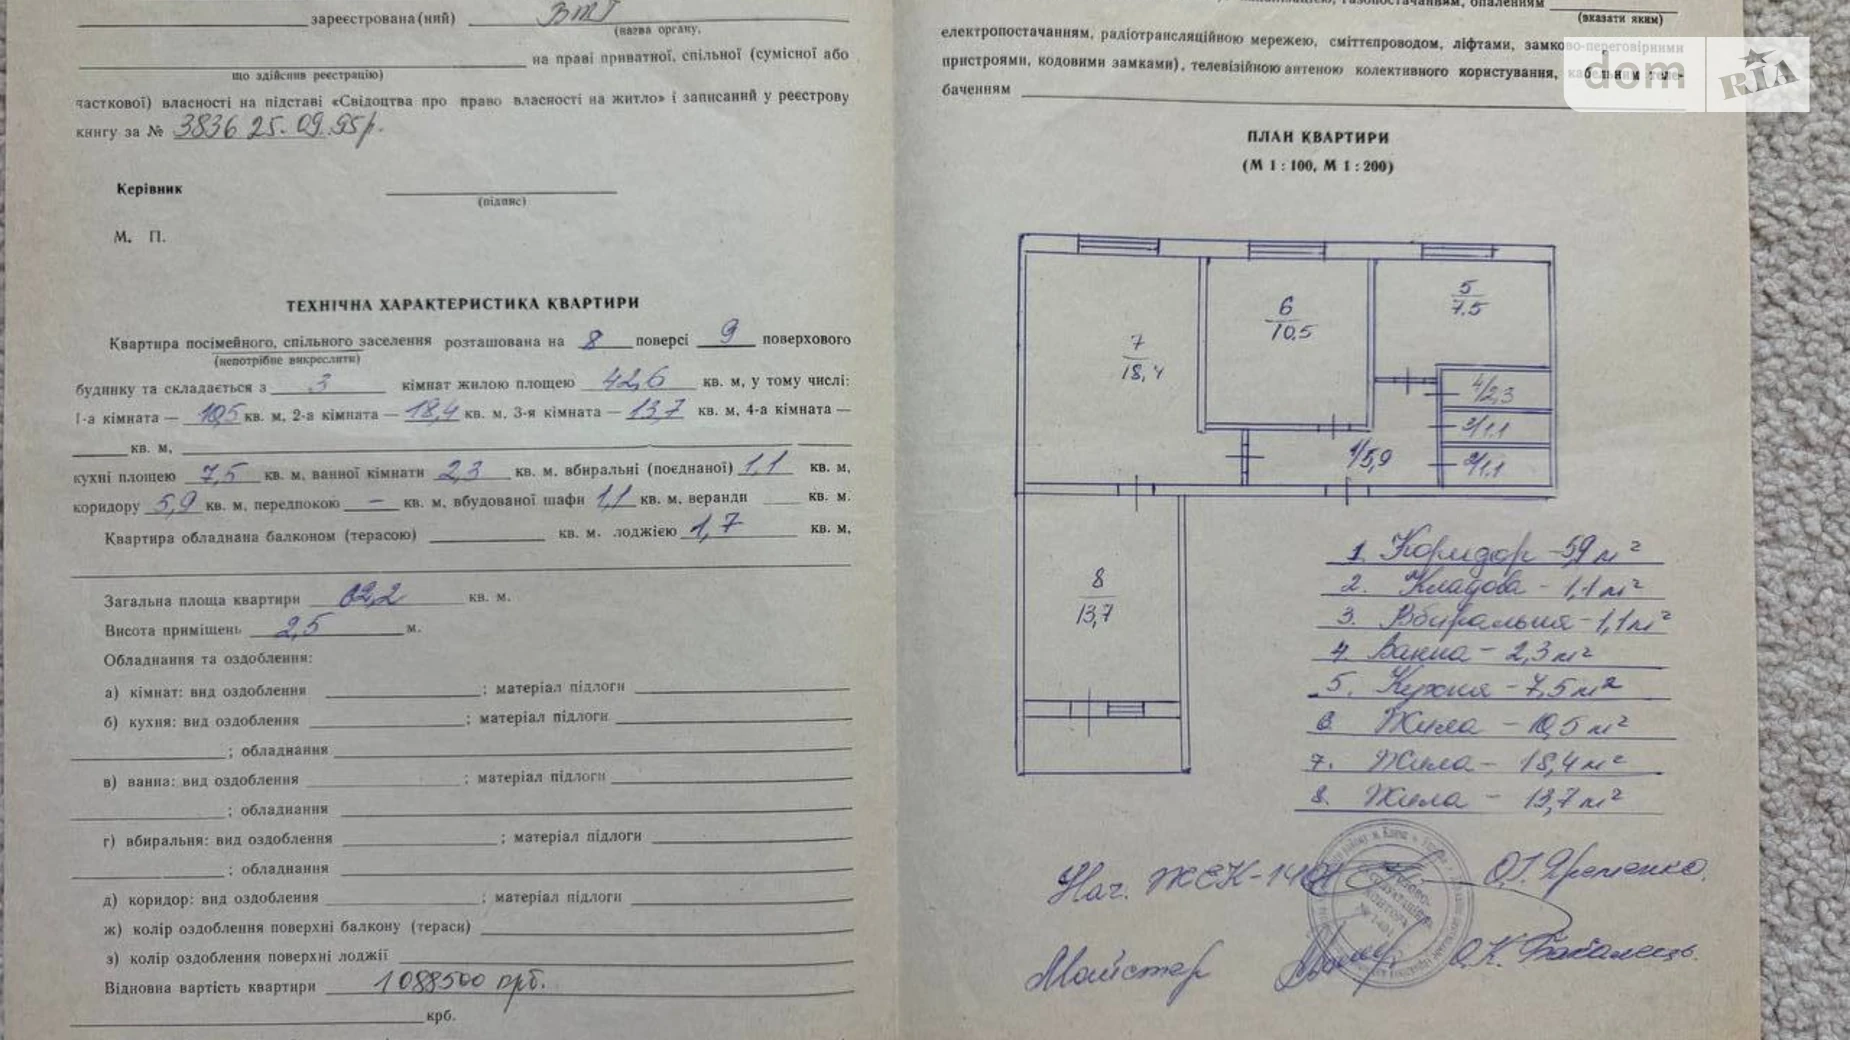 зареєстрована (ний) ВТІ
(назва органу,
на праві приватної, спільної (сумісної або
що здійснив реєстрацію)
часткової) власності на підставі «Свідоцтва про право власності на житло» і записаний у реєстрову
книгу за № 3836 25.09.95р.
Керівник
(підпис)
М. П.
ТЕХНІЧНА ХАРАКТЕРИСТИКА КВАРТИРИ
Квартира посімейного, спільного заселення розташована на 8 поверсі 9 поверхового
(непотрібне викреслити)
будинку та складається з 3 кімнат жилою площею 42,6 кв. м, у тому числі:
1-а кімната — 10,5 кв. м, 2-а кімната — 18,4 кв. м, 3-я кімната — 13,7 кв. м, 4-а кімната —
кв. м,
кухні площею 7,5 кв. м, ванної кімнати 2,3 кв. м. вбиральні (поєднаної) 1,1 кв. м,
коридору 5,9 кв. м, передпокою — кв. м, вбудованої шафи 1,1 кв. м, веранди кв. м.
Квартира обладнана балконом (терасою) кв. м. лоджією 1,7 кв. м,
Загальна площа квартири 62,2 кв. м.
Висота приміщень 2,5 м.
Обладнання та оздоблення:
а) кімнат: вид оздоблення ; матеріал підлоги
б) кухня: вид оздоблення ; матеріал підлоги
; обладнання
в) ванна: вид оздоблення ; матеріал підлоги
; обладнання
г) вбиральня: вид оздоблення ; матеріал підлоги
; обладнання
д) коридор: вид оздоблення ; матеріал підлоги
ж) колір оздоблення поверхні балкону (тераси)
з) колір оздоблення поверхні лоджії
Відновна вартість квартири 1088500 крб.
крб.
опаленням
(вказати яким)
електропостачанням, радіотрансляційною мережею, сміттєпроводом, ліфтами, замково-переговірними
пристроями, кодовими замками), телевізійною антеною колективного користування, кабельним теле-
баченням
dom RIA
ПЛАН КВАРТИРИ
(М 1 : 100, М 1 : 200)
5
7.5
6
10,5
7
18,4
4/2,3
3/1,1
2/1,1
1/5,9
8
13,7
1. Коридор - 5,9 м²
2. Кладова - 1,1 м²
3. Вбиральня - 1,1 м²
4. Ванна - 2,3 м²
5. Кухня - 7,5 м²
6. Жила - 10,5 м²
7. Жила - 18,4 м²
8. Жила - 13,7 м²
Нач. ЖЕК-1401 О.І. Яременко
Майстер О.К.